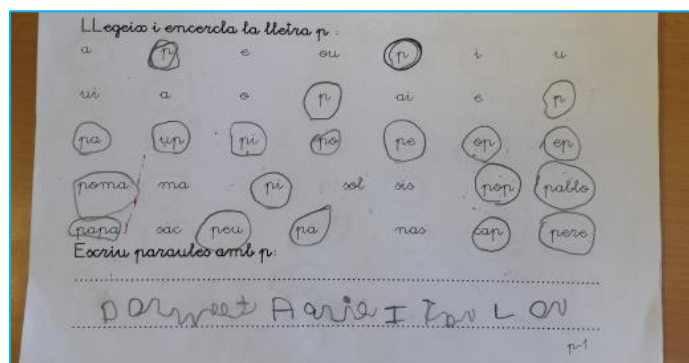 LLegeix i encercla la lletra p :
a p e ou p i u
ui a o p ai e p
pa up pi po pe op ep
poma ma pi sol sis pop pablo
papa sac peu pa nas cap pere
Escriu paraules amb p:
p-1